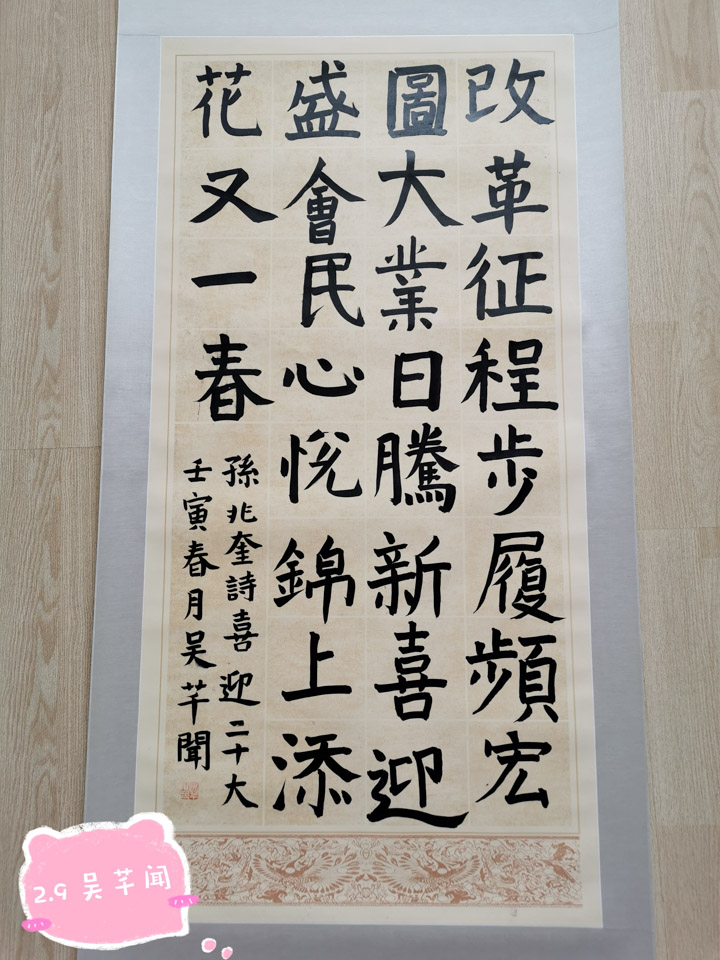 改革征程步履頻宏
圖大業日騰新喜迎
盛會民心悅錦上添
花又一春
孫兆奎詩喜迎二十大
壬寅春月吴芊聞
2.9 吴芊闻